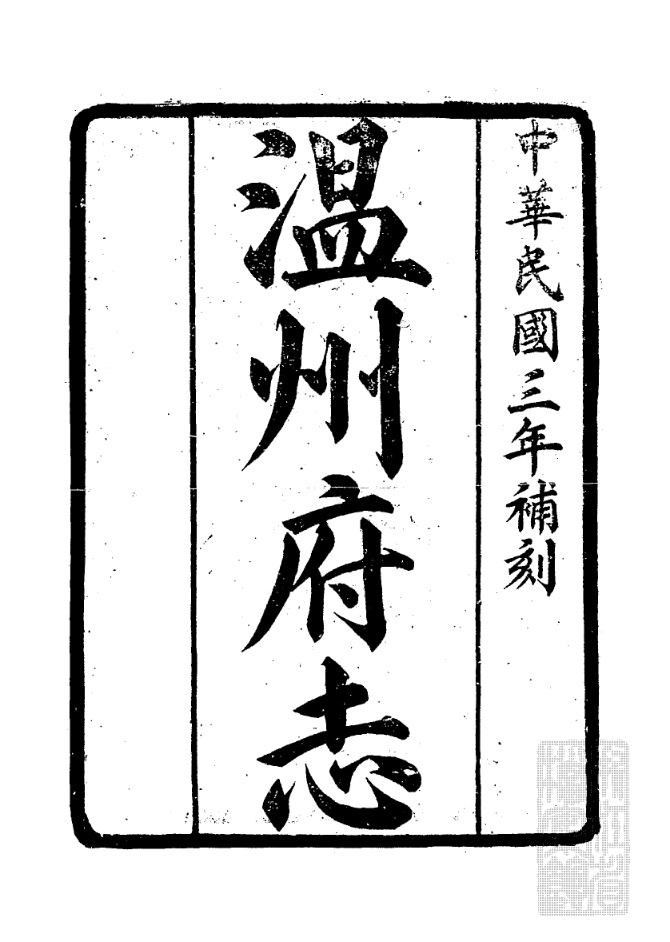 中華民國三年補刻
溫州府志